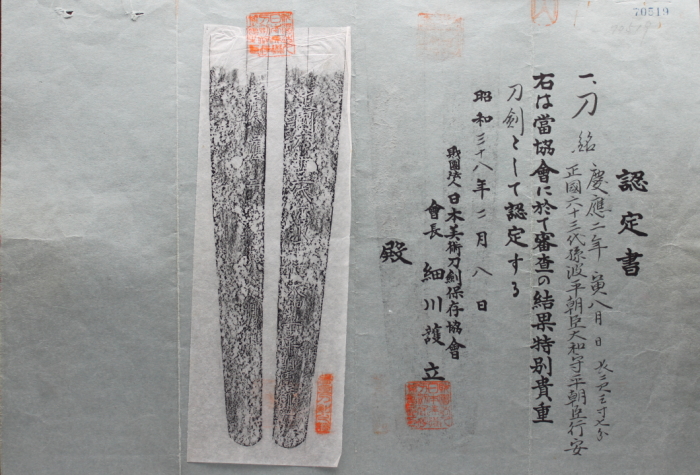 70519
認定書
一、刀 銘 慶應二年寅八月日 長二尺三寸七分
正國六十三代孫波平朝臣大和守平朝臣行安
右は當協會に於て審査の結果特別貴重
刀劍として認定する
昭和三十八年二月八日
財團法人日本美術刀劍保存協會
會長 細川護立
殿